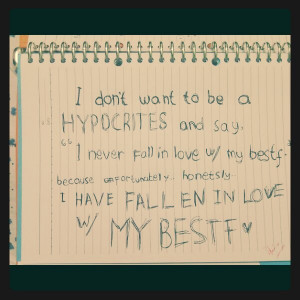 I don't want to be a
HYPOCRITES and say,
" I never fall in love w/ my bestf.
because unfortunately, honetsly
I HAVE FALLEN IN LOVE
w/ MY BESTF ♥